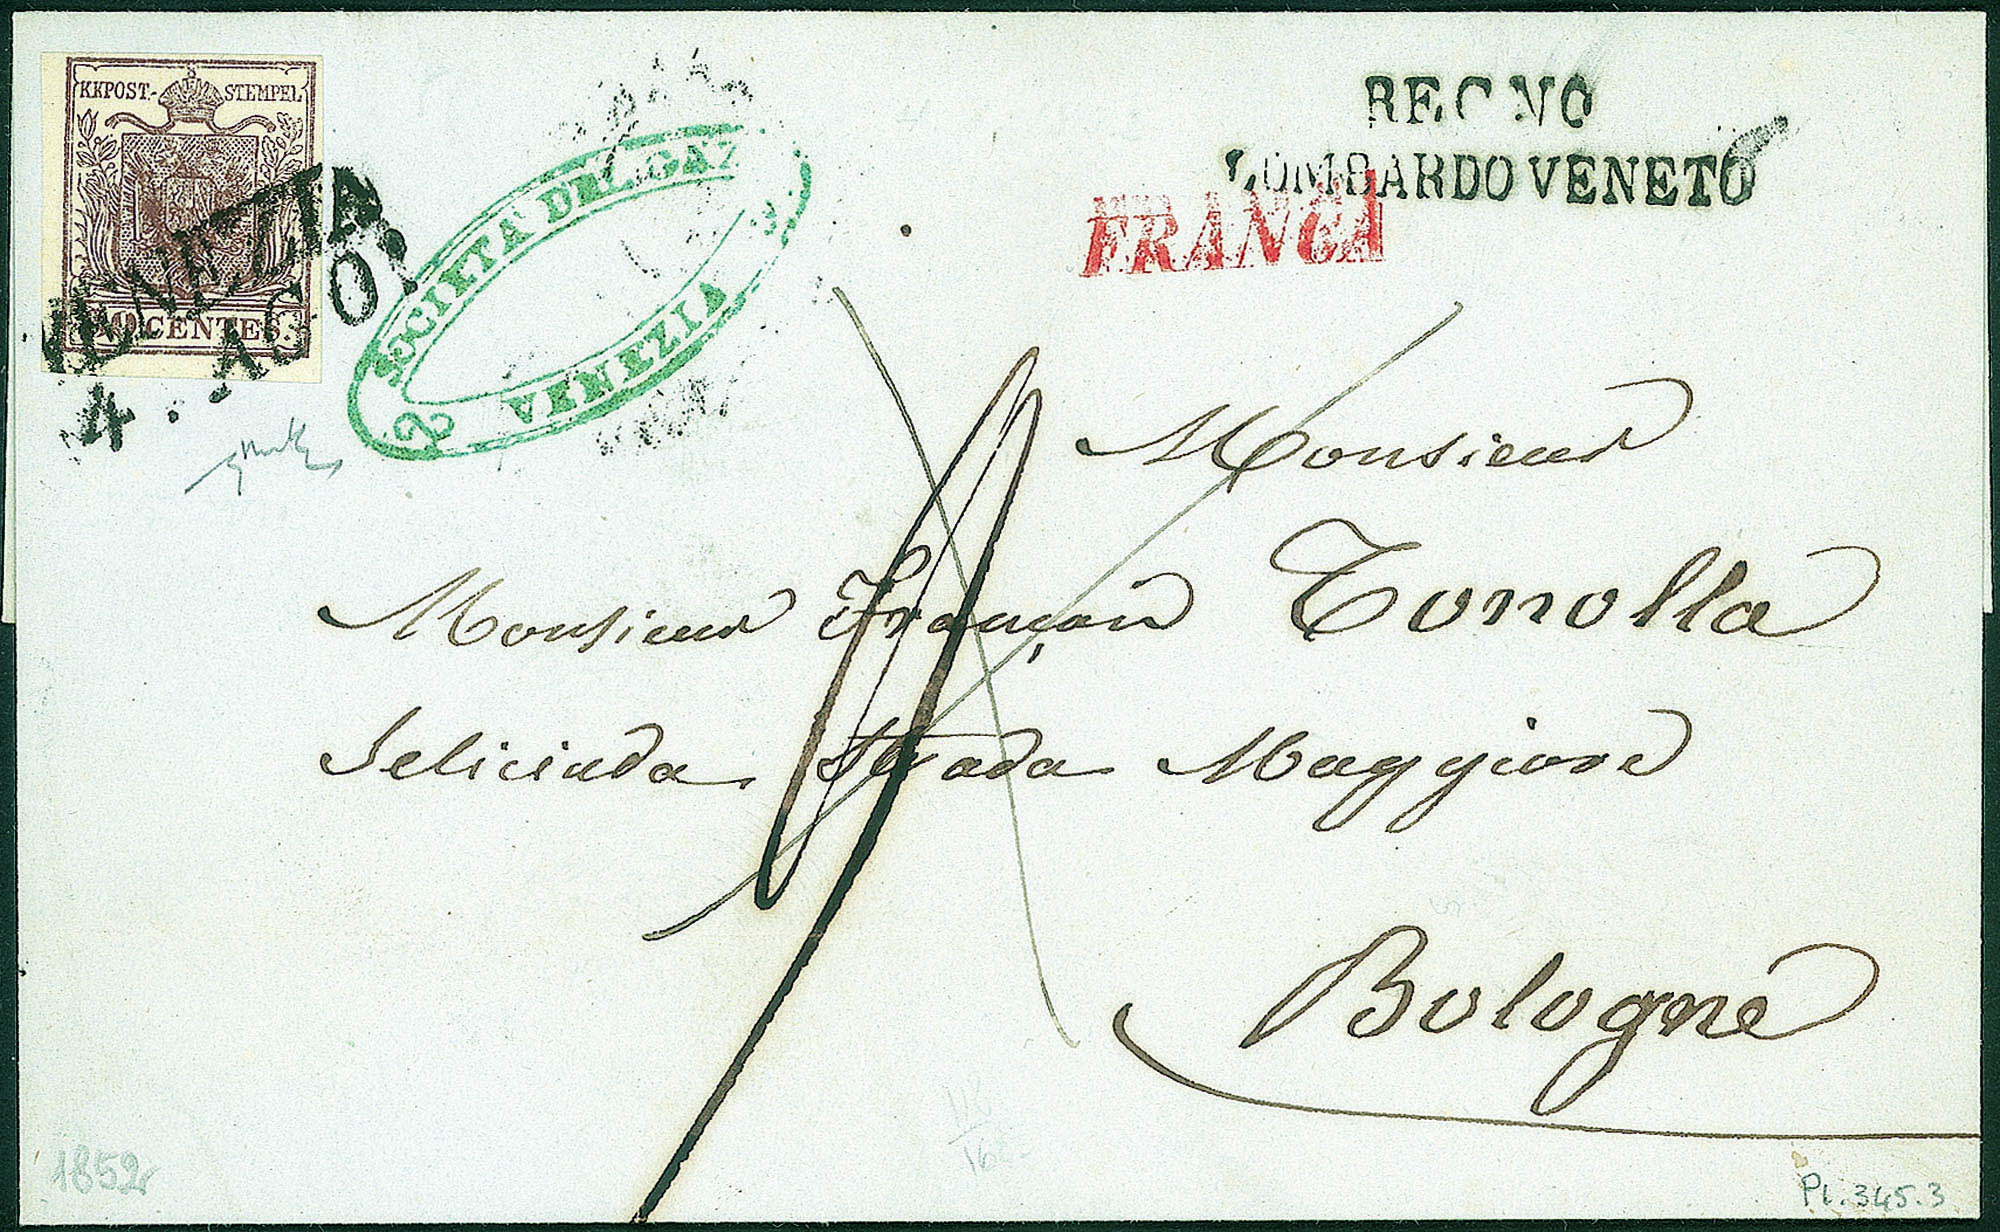 KKPOST-STEMPEL
CENTES
VENEZIA
4. AGO.
SOCIETÀ DEL GAZ
VENEZIA
REGNO
LOMBARDO VENETO
FRANCA
Monsieur
Monsieur François Tonolla
Selicinda Strada Maggiore
Bologne
1852
118
PL.345.3